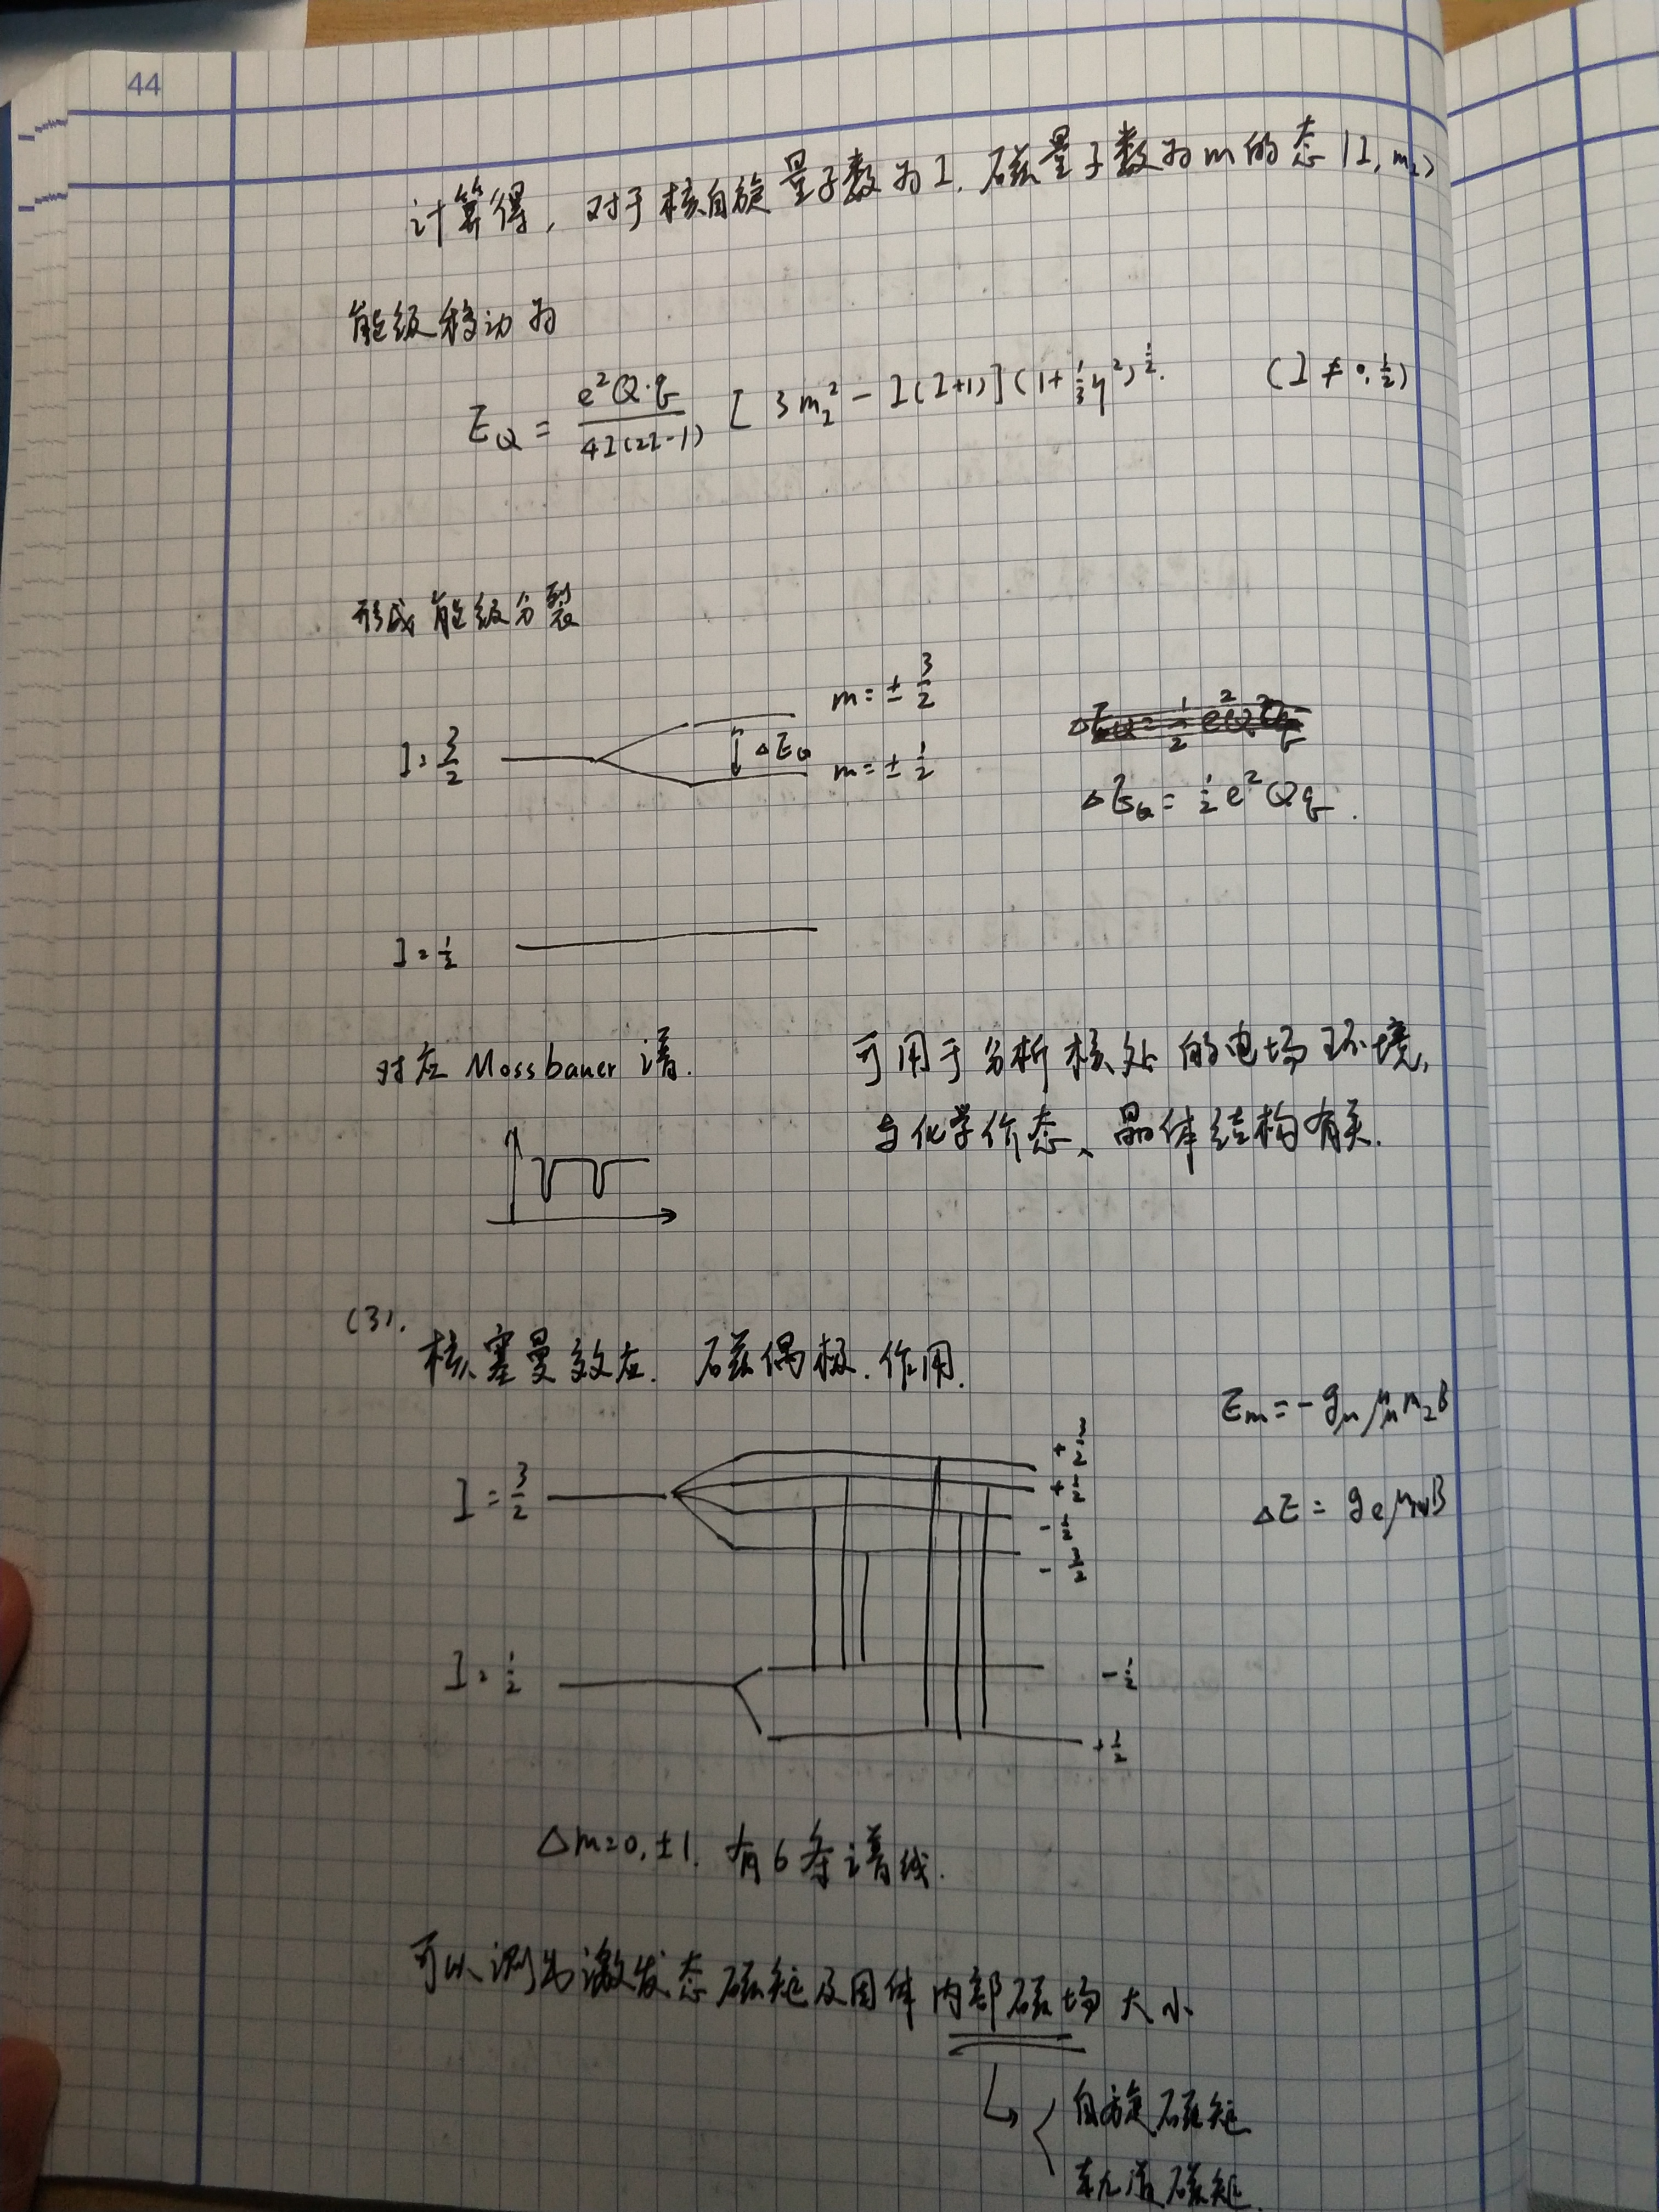 44
计算得, 对于核自旋量子数为I, 磁量子数为m的态 |I, m_z>
能级移动为
E_Q = \frac{e^2Q·q}{4I(2I-1)} [3m_z^2 - I(I+1)](1+\frac{1}{3}η^2)^{\frac{1}{2}}. (I ≠ 0, \frac{1}{2})
形成能级分裂
m = ± \frac{3}{2}
I = \frac{3}{2} ΔE_Q m = ± \frac{1}{2}
ΔE_Q = \frac{1}{2} e^2Qq.
I = \frac{1}{2}
对应 Mossbauer 谱. 可用于分析核处的电场环境,
与化学价态、晶体结构有关.
(3).
核塞曼效应. 磁偶极.作用.
E_m = - g_n μ_n m_z B
I = \frac{3}{2} + \frac{3}{2}
+ \frac{1}{2}
- \frac{1}{2}
- \frac{3}{2}
ΔE = g_e μ_N B
I = \frac{1}{2} - \frac{1}{2}
+ \frac{1}{2}
Δm=0, ±1. 有6条谱线.
可以测出激发态磁矩及固体内部磁场大小
自旋磁矩
轨道磁矩.